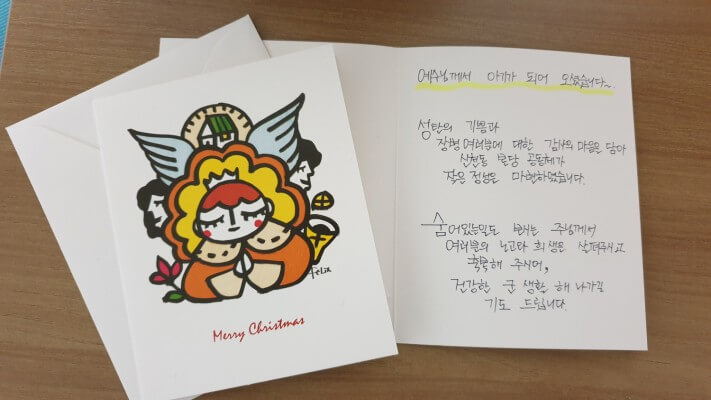 Felix
Merry Christmas
예수님께서 아기가 되어 오셨습니다~
성탄의 기쁨과
장병 여러분에 대한 감사의 마음을 담아
신천동 본당 공동체가
작은 정성을 마련하였습니다.
숨어있는일도 보시는 주님께서
여러분의 노고와 희생을 살펴주시고
축복해 주시며,
건강한 군 생활 해 나가길
기도 드립니다.